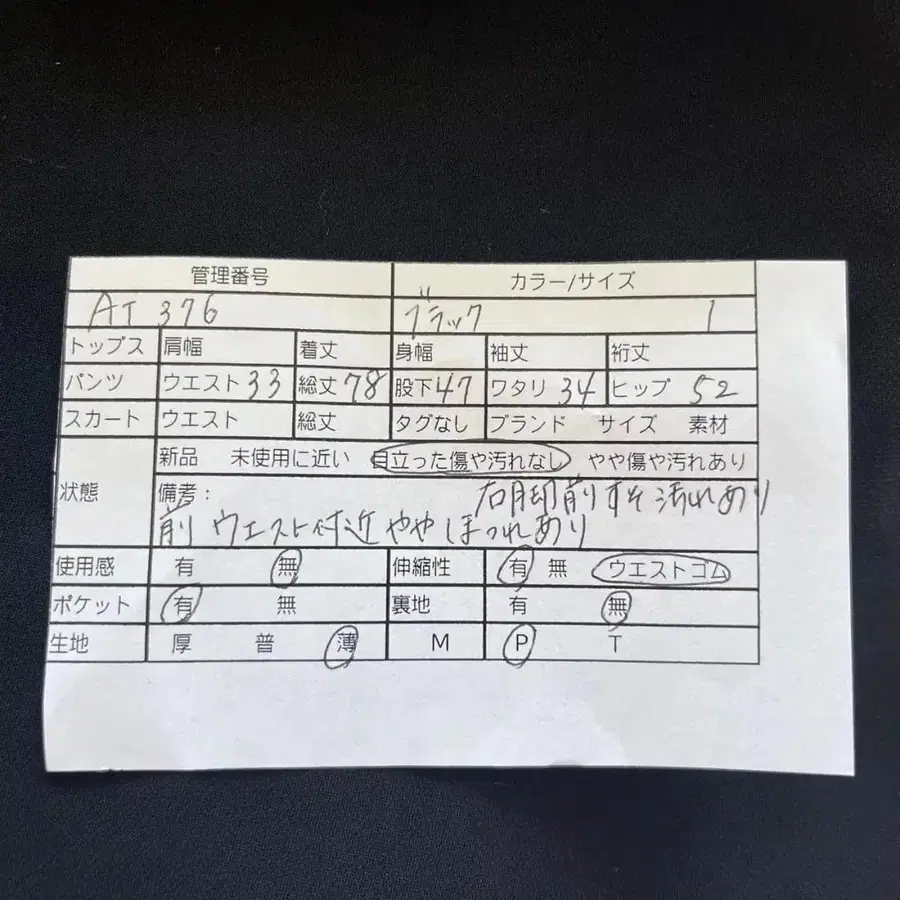 管理番号 カラー/サイズ
AT 376 ブラック 1
トップス 肩幅 着丈 身幅 袖丈 裄丈
パンツ ウエスト 33 総丈 78 股下 47 ワタリ 34 ヒップ 52
スカート ウエスト 総丈 タグなし ブランド サイズ 素材
新品 未使用に近い 目立った傷や汚れなし やや傷や汚れあり
状態 備考: 右脚前すそ汚れあり
前 ウエスト付近ややほつれあり
使用感 有 無 伸縮性 有 無 ウエストゴム
ポケット 有 無 裏地 有 無
生地 厚 普 薄 M P T